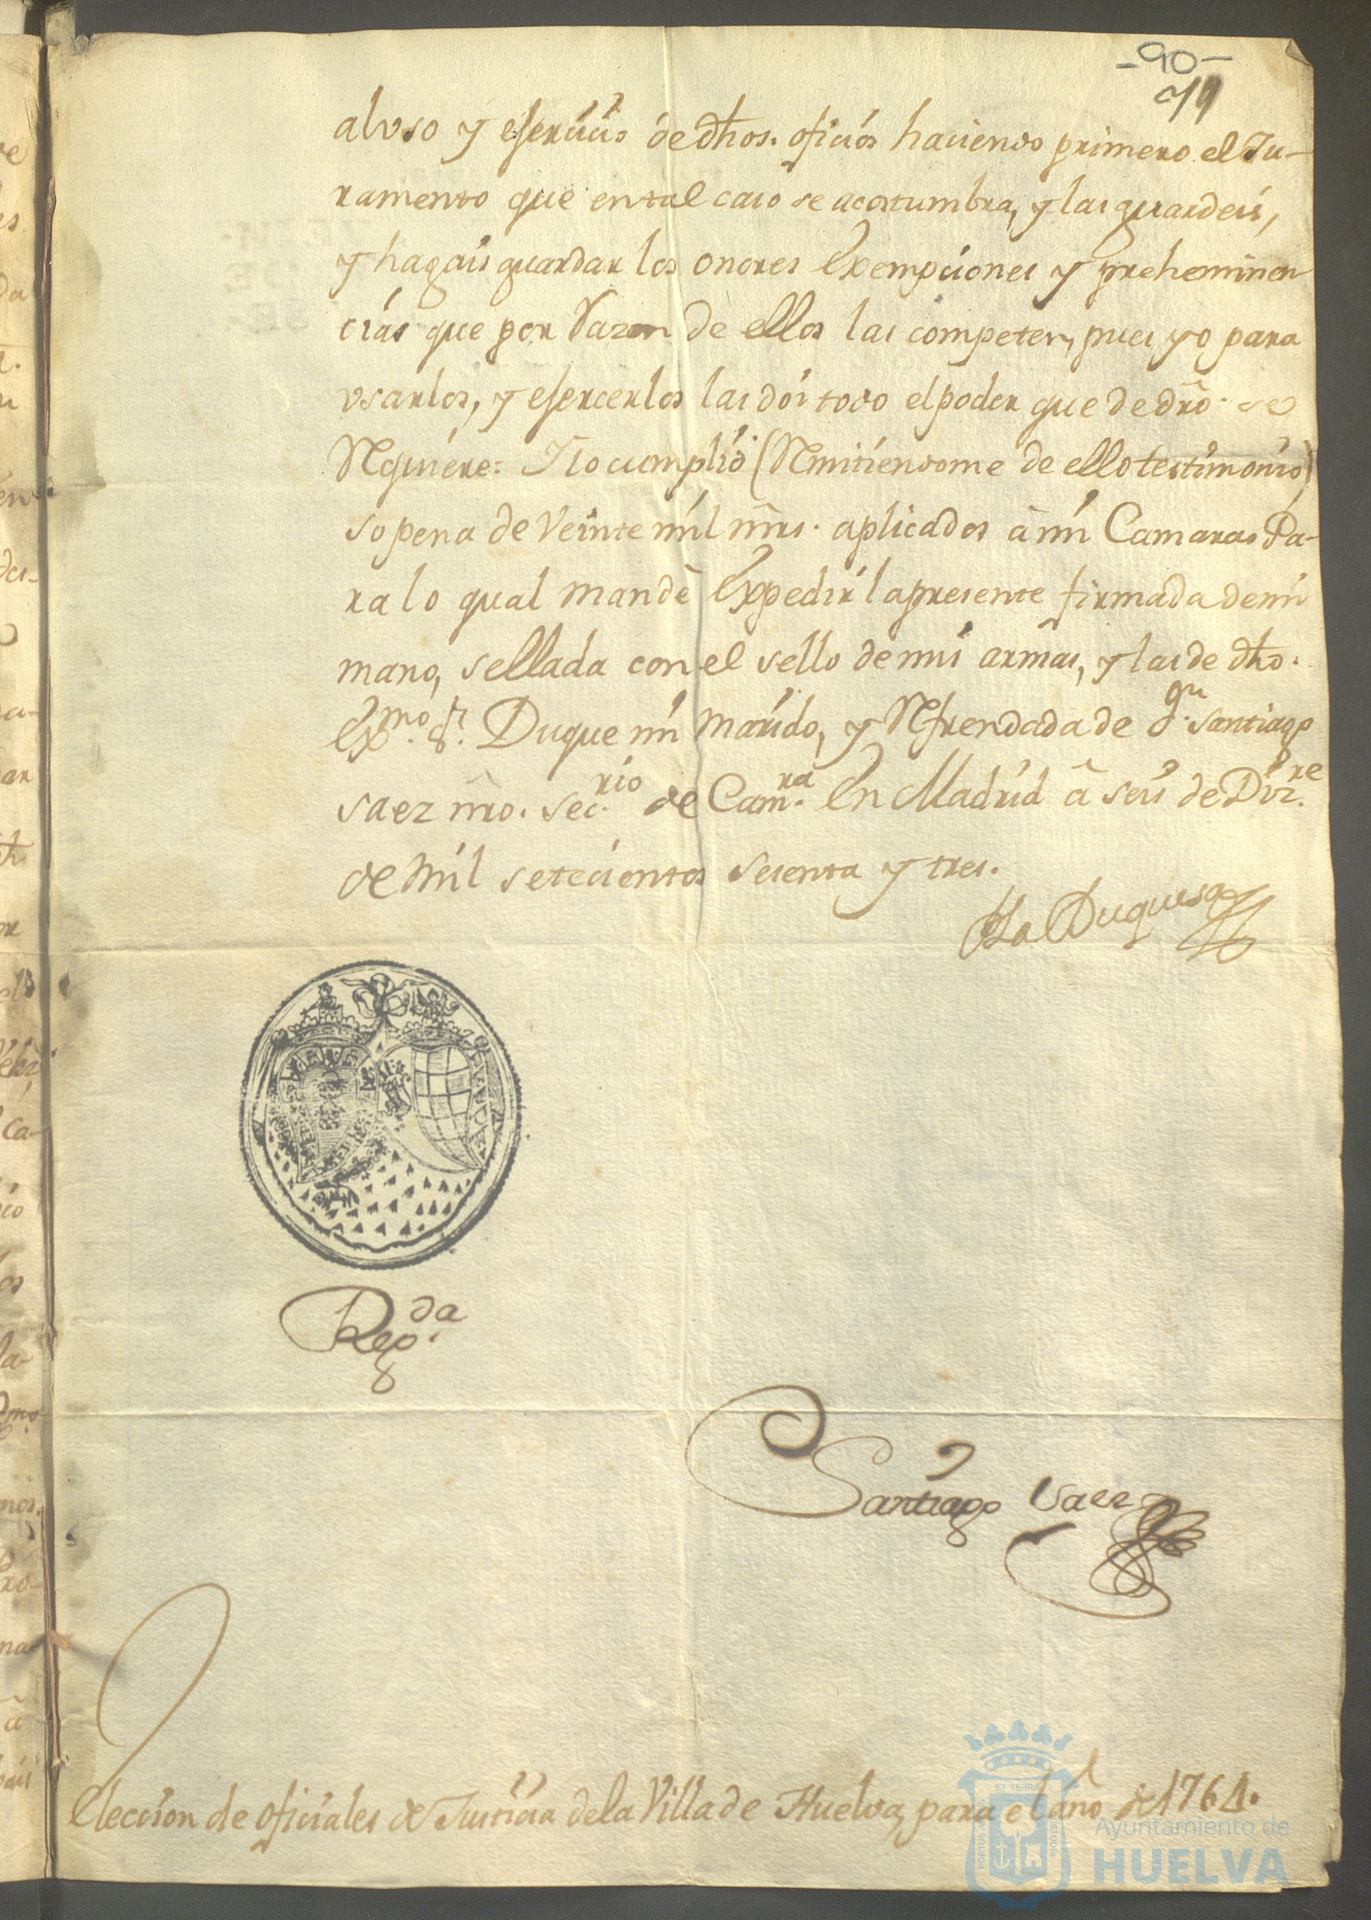 -90-
al vso y eserciçio de dhos. oficios haciendo primero el Ju-
ramento que en tal caso se acostumbra, y las guardeis,
y hagais guardar los onores Exempciones y preheminen
cias que por Razon de ellos las competen, pues yo para
vsarlos, y esercerlos las doi todo el poder que de dro. se
Requiere: I lo cumplid (Remitiendome de ello testimonio)
so pena de Veinte mil mrs. aplicados â mi Camara, Pa-
ra lo qual mandè Expedir la presente firmada de mi
mano, sellada con el sello de mis armas, y las de dho.
Exmo. Sr. Duque mi Marido, y Refrendada de Dn. Santiago
saez nro. secrio. de Camra. En Madrid â seis de Dizre.
de Mil setecientos sesenta y tres.
La Duquesa
Regda.
Santiago Saez
Eleccion de oficiales de Justicia de la Villa de Huelva, para el año de 1764.
Ayuntamiento de
HUELVA